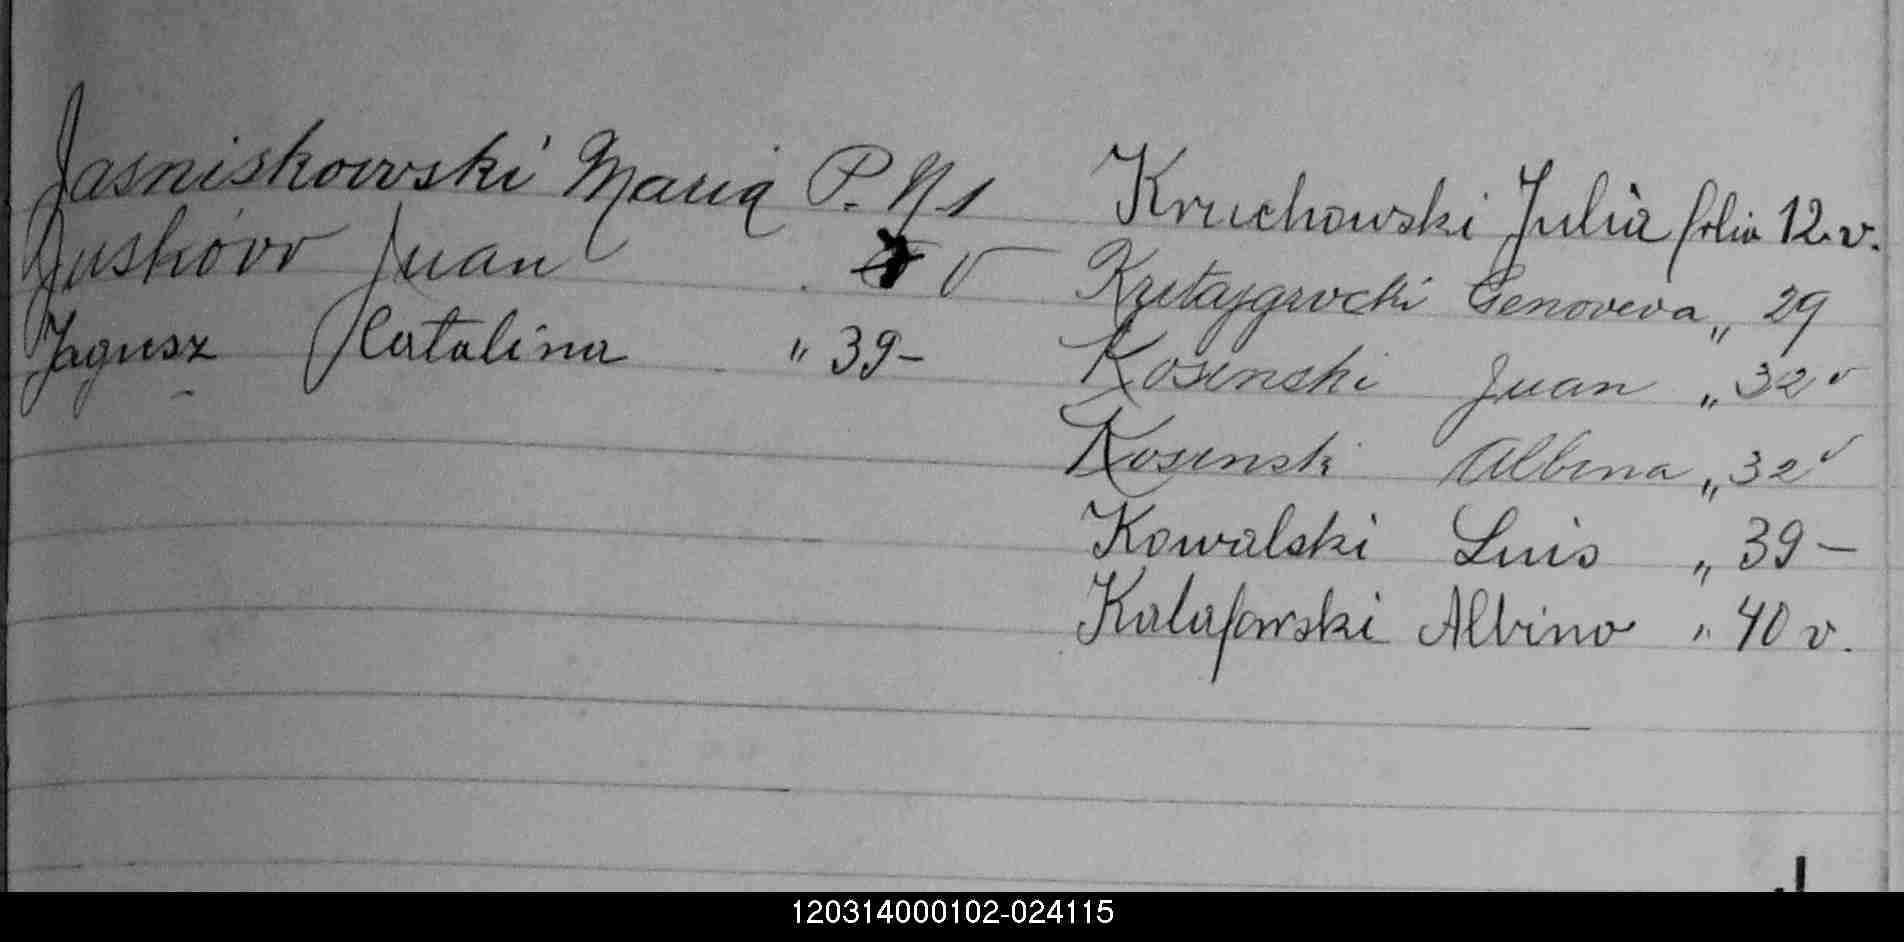 Jasniskowski Maria P. N 1
Juskow Juan v
Jagusz Catalina " 39-
Kruchowski Julia folio 12 v.
Genoveva " 29
Kosinski Juan " 32 v
Kosinski Albina " 32 v
Kowalski Luis " 39-
Kalafarski Albino " 40 v.
120314000102-024115